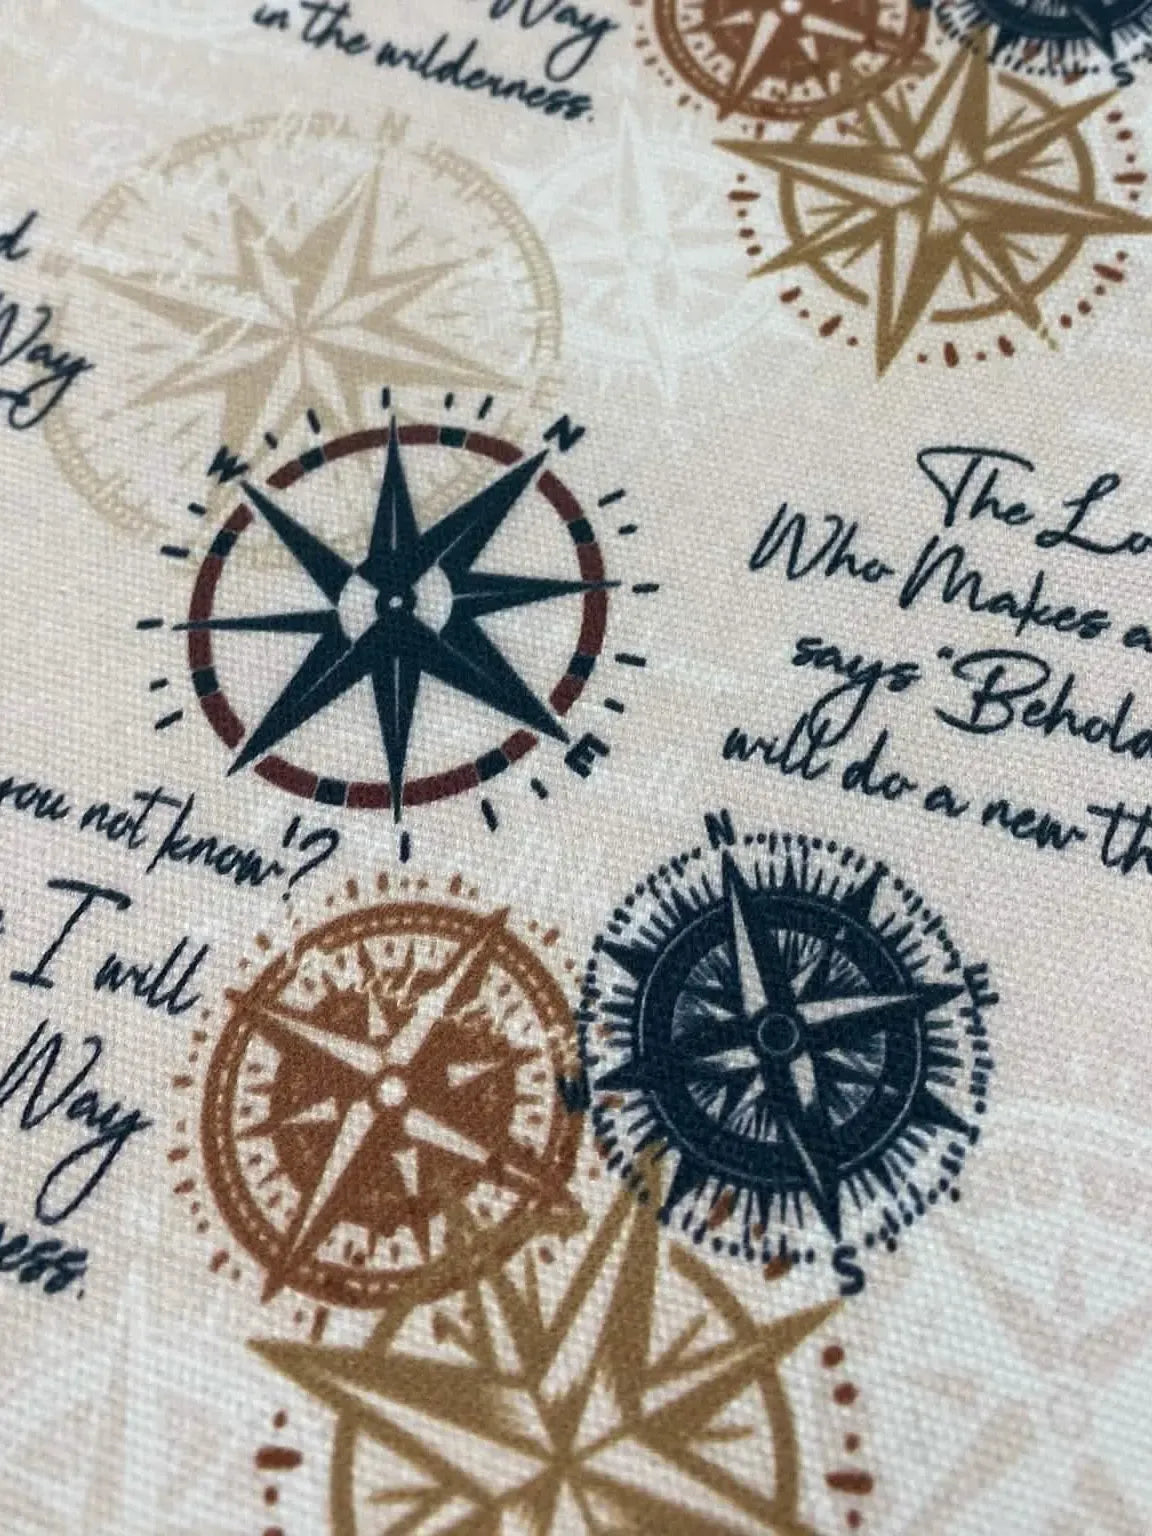 Way
in the wilderness.
Way
The
Who Makes
says "Behold
will do a new
you not know'?
I will
Way
N
W
N
E
N
S